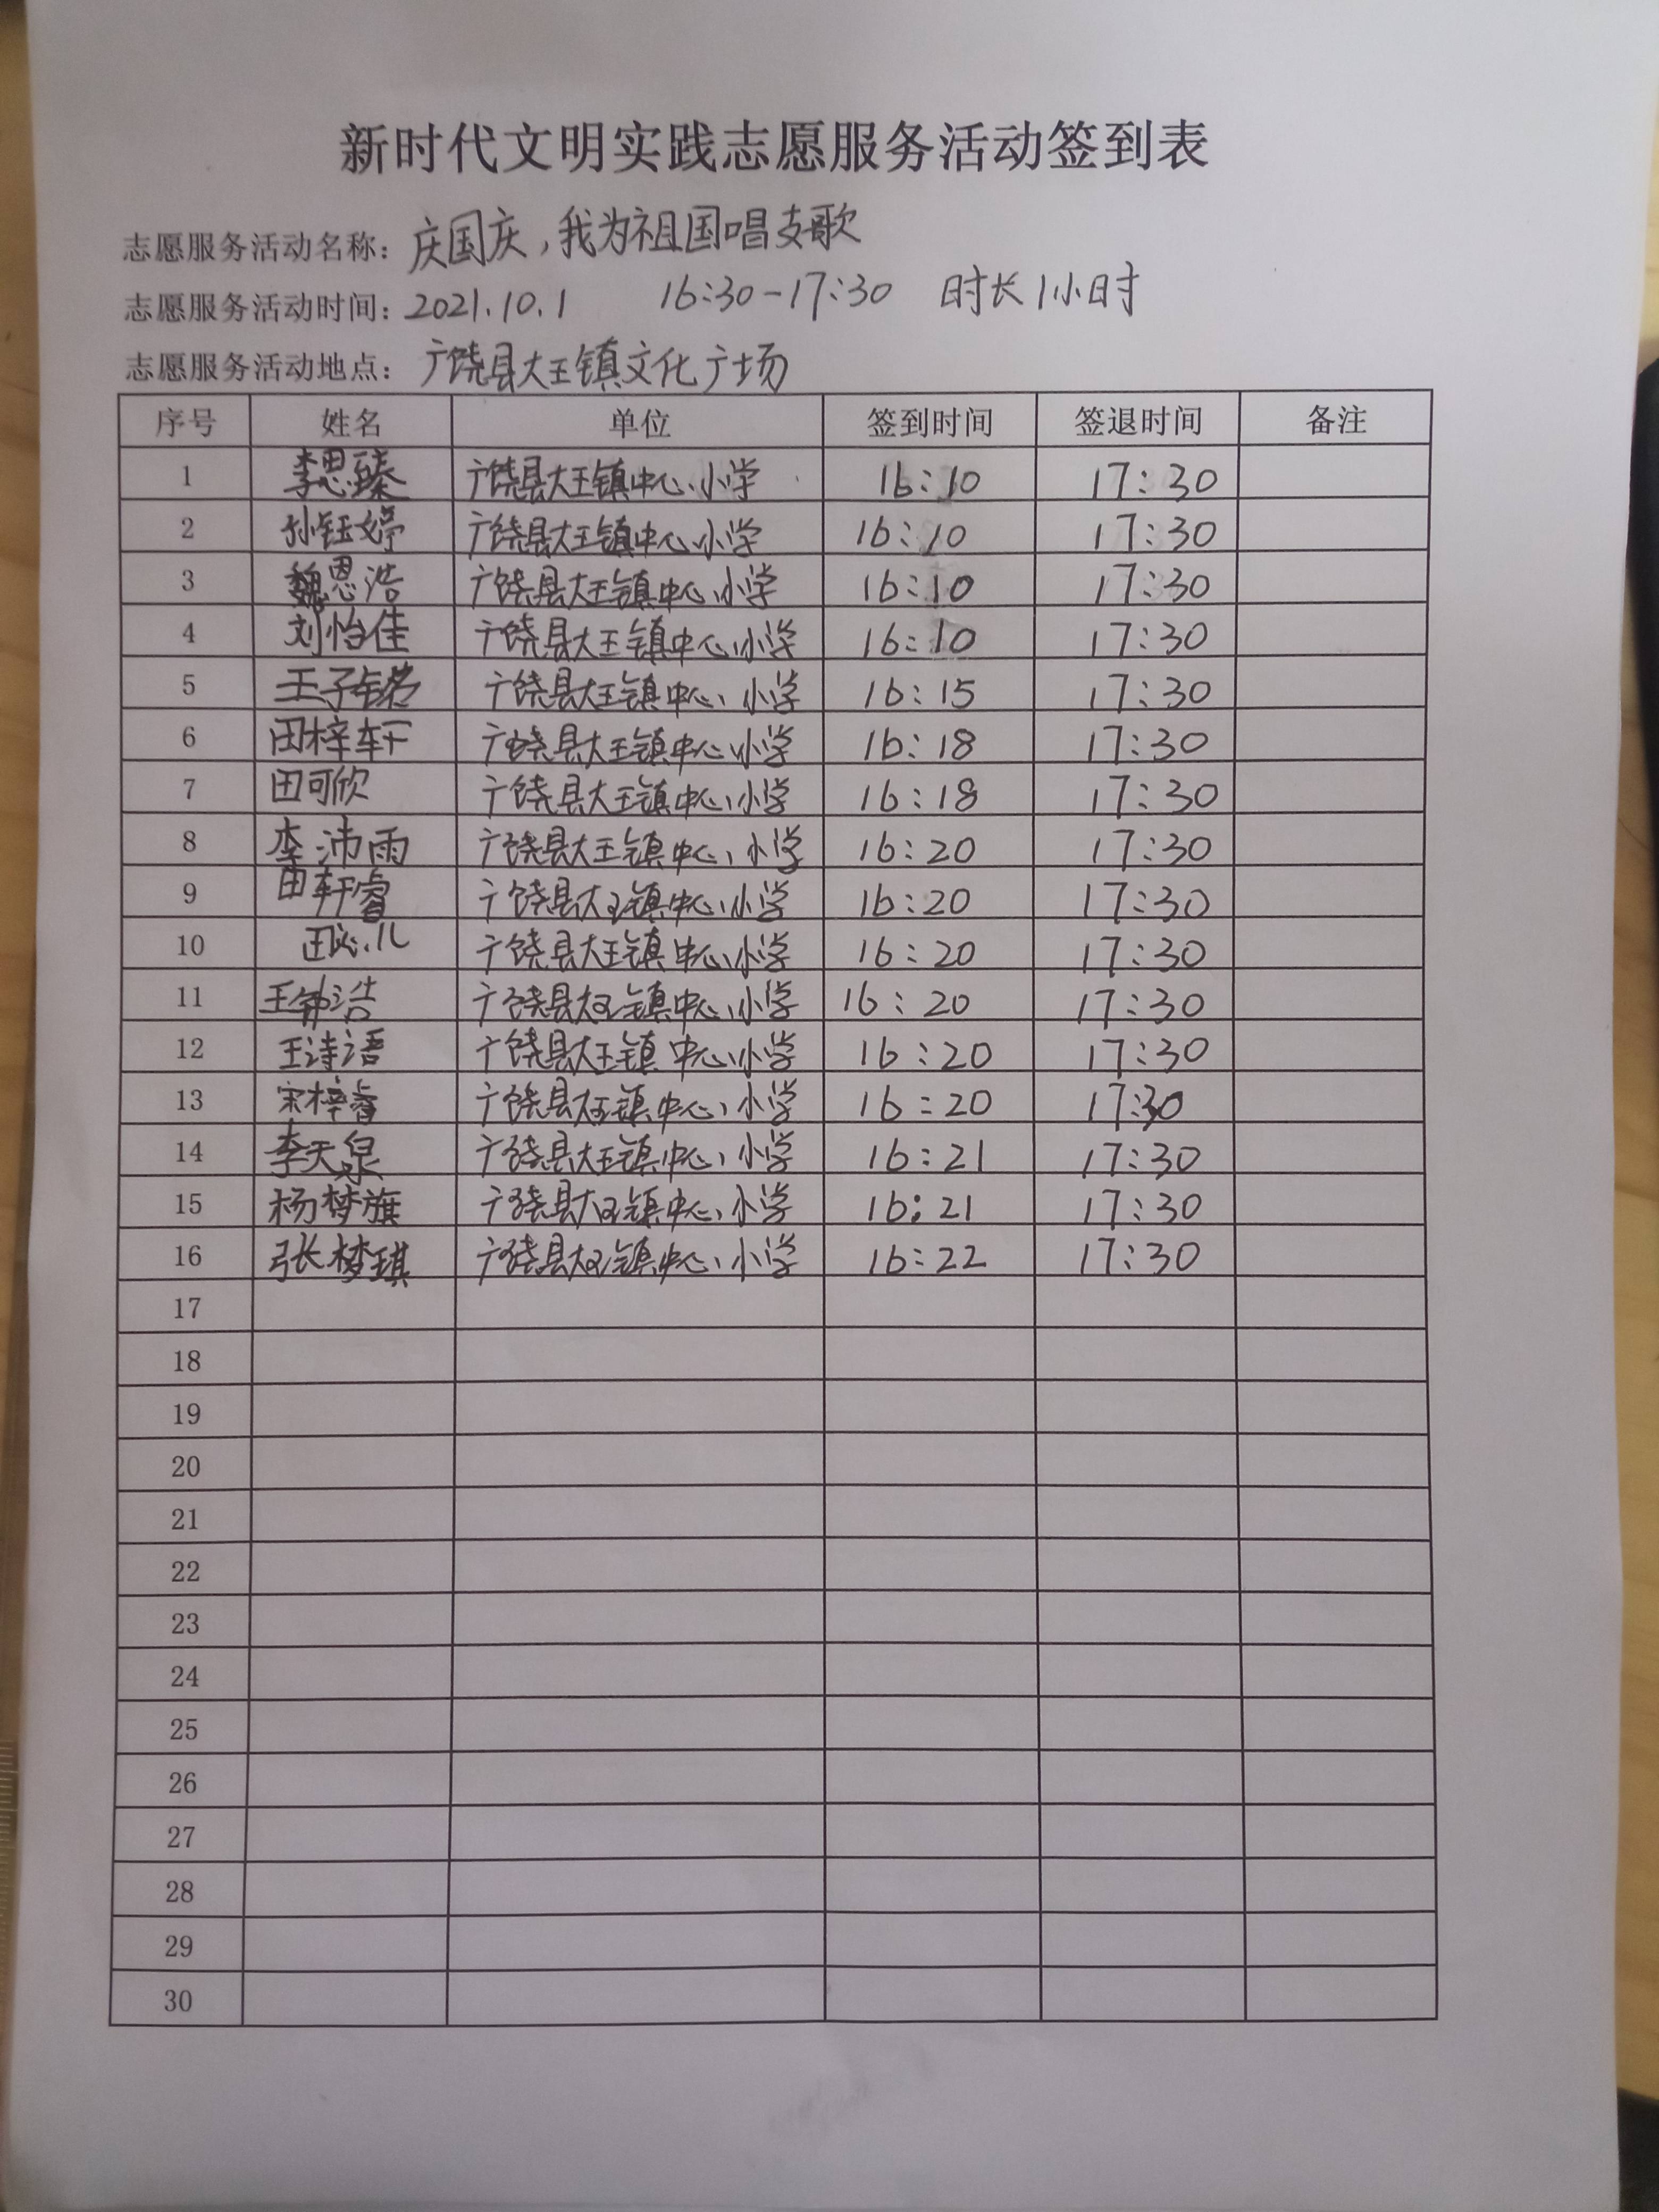 新时代文明实践志愿服务活动签到表
志愿服务活动名称：庆国庆，我为祖国唱支歌
志愿服务活动时间：2021.10.1 16:30-17:30 时长1小时
志愿服务活动地点：广饶县大王镇文化广场
序号 姓名 单位 签到时间 签退时间 备注
1 李思臻 广饶县大王镇中心小学 16:10 17:30
2 孙钰婷 广饶县大王镇中心小学 16:10 17:30
3 魏恩浩 广饶县大王镇中心小学 16:10 17:30
4 刘怡佳 广饶县大王镇中心小学 16:10 17:30
5 广饶县大王镇中心小学 16:15 17:30
6 田梓轩 广饶县大王镇中心小学 16:18 17:30
7 田可欣 广饶县大王镇中心小学 16:18 17:30
8 李沛雨 广饶县大王镇中心小学 16:20 17:30
9 田轩睿 广饶县大王镇中心小学 16:20 17:30
10 广饶县大王镇中心小学 16:20 17:30
11 广饶县大王镇中心小学 16:20 17:30
12 王诗语 广饶县大王镇中心小学 16:20 17:30
13 宋梓睿 广饶县大王镇中心小学 16:20 17:30
14 李天泉 广饶县大王镇中心小学 16:21 17:30
15 杨梦旗 广饶县大王镇中心小学 16:21 17:30
16 张梦琪 广饶县大王镇中心小学 16:22 17:30
17
18
19
20
21
22
23
24
25
26
27
28
29
30